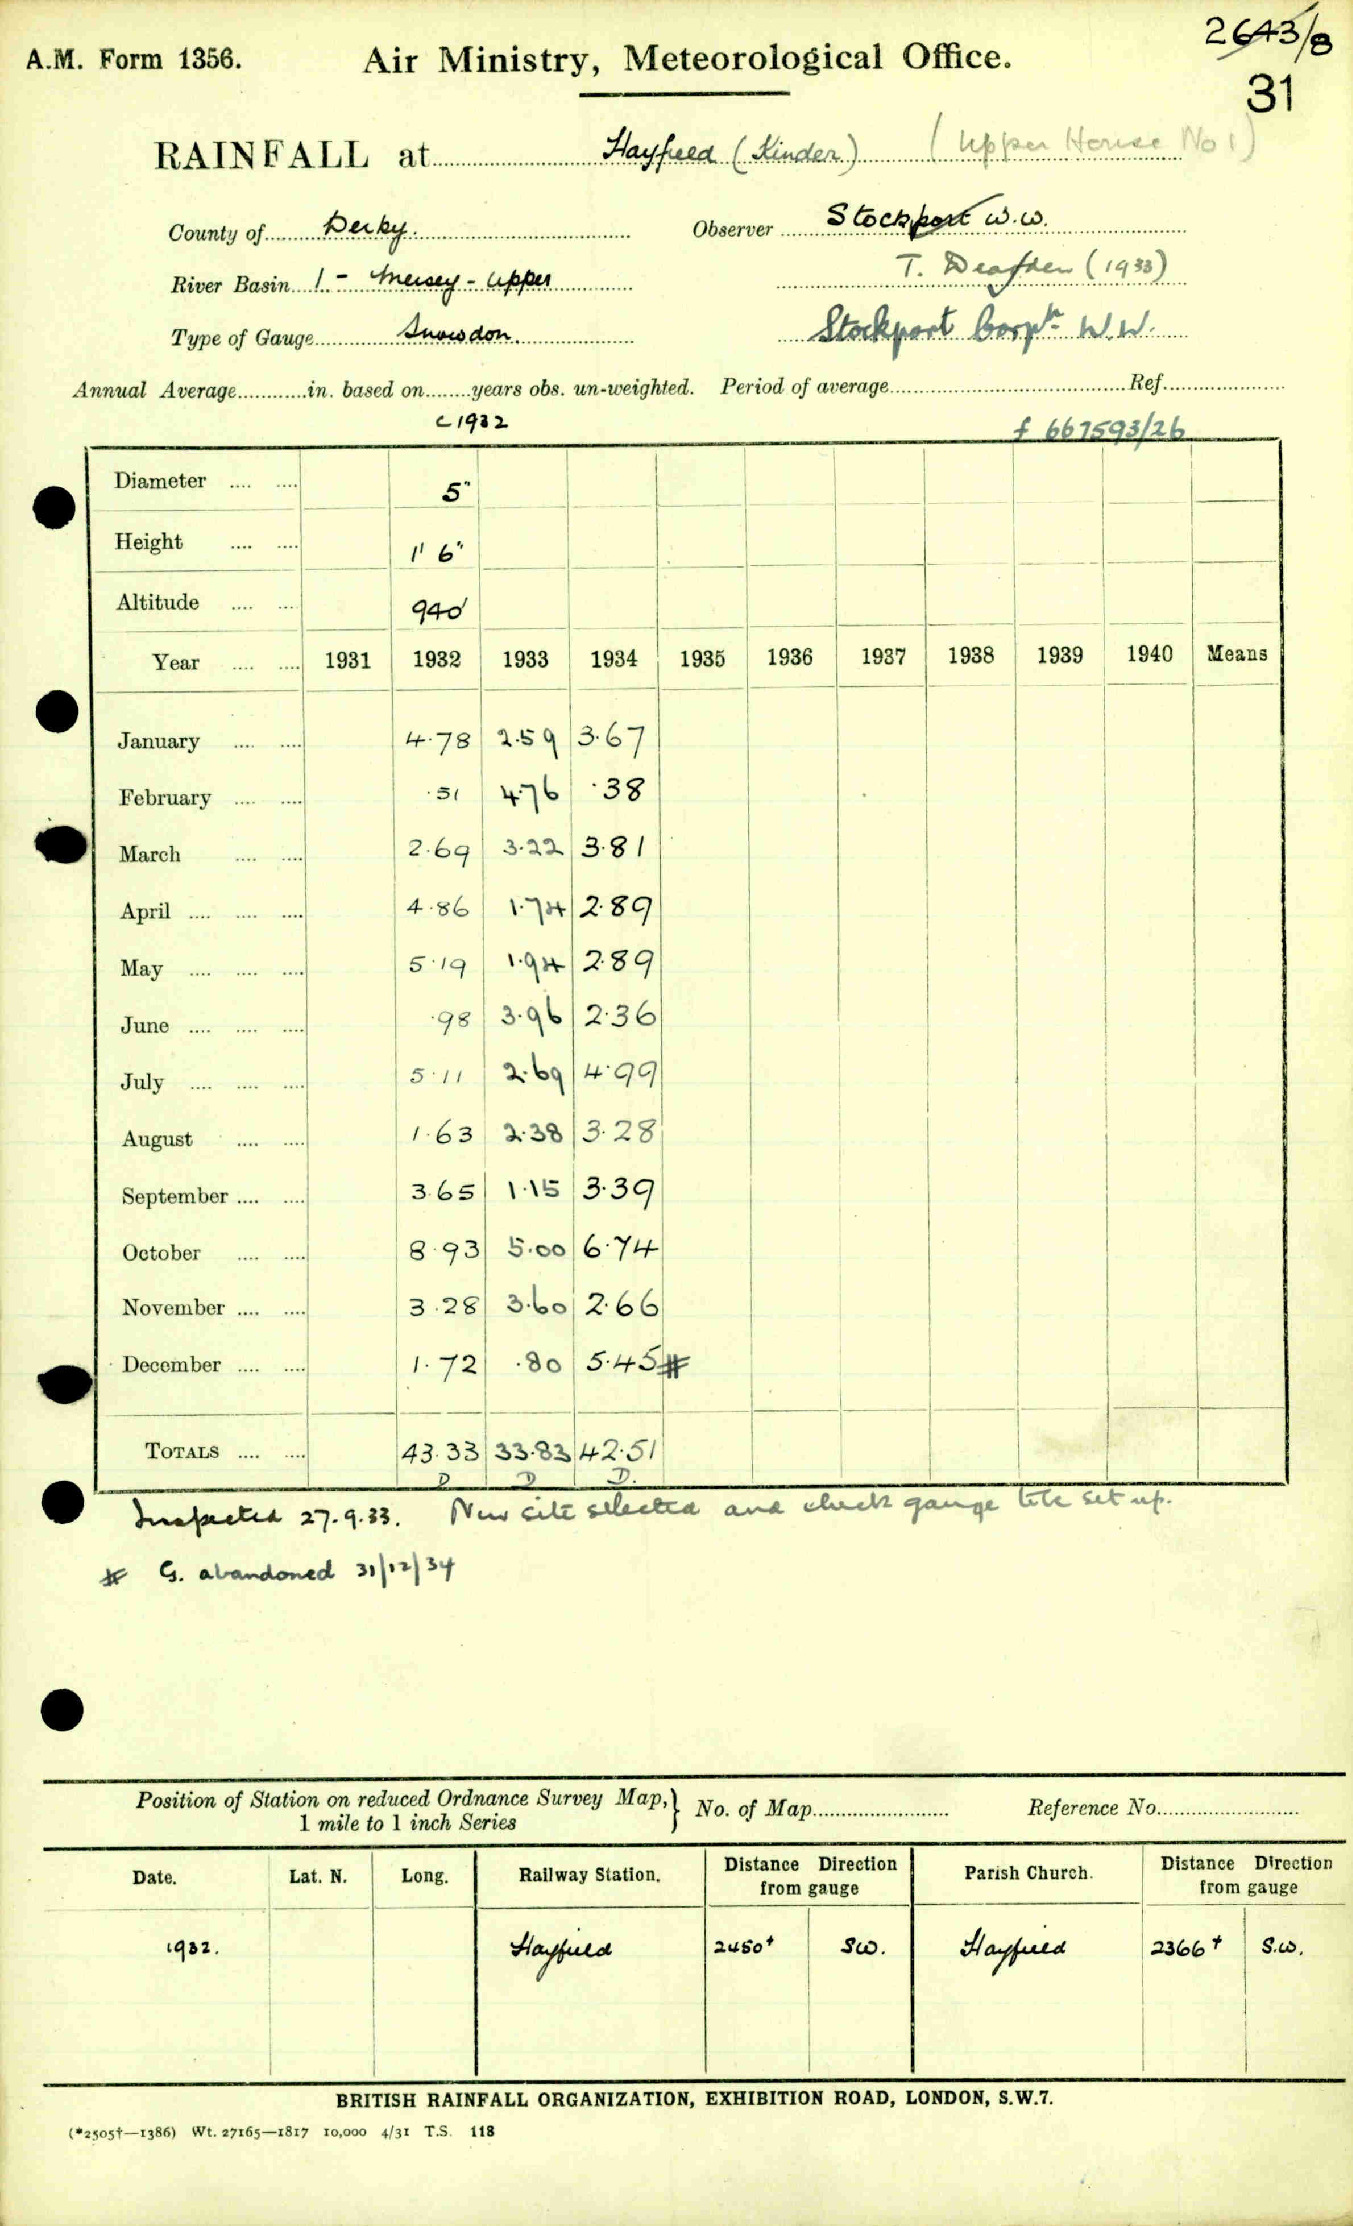 2643/8
A.M. Form 1356. Air Ministry, Meteorological Office.
31
RAINFALL at Hayfield (Kinder) (Upper House No 1)
County of Derby. Observer Stockport W.W.
River Basin 1. - Mersey - Upper T. (1933)
Type of Gauge Snowdon. Stockport Corpn. W.W.
Annual Average............in. based on........years obs. un-weighted. Period of average............Ref............
c 1932 f 667593/26
Diameter .... .... 5"
Height .... .... 1' 6"
Altitude .... .... 940'
Year .... .... 1931 1932 1933 1934 1935 1936 1937 1938 1939 1940 Means
January .... .... 4.78 2.59 3.67
February .... .... .51 4.76 .38
March .... .... 2.69 3.22 3.81
April .... .... .... 4.86 1.74 2.89
May .... .... .... 5.19 1.94 2.89
June .... .... .... .98 3.96 2.36
July .... .... .... 5.11 2.69 4.99
August .... .... 1.63 2.38 3.28
September .... .... 3.65 1.15 3.39
October .... .... 8.93 5.00 6.74
November .... .... 3.28 3.60 2.66
December .... .... 1.72 .80 5.45 #
TOTALS .... .... 43.33 33.83 42.51
D D D.
Inspected 27.9.33. New site selected and check gauge to be set up.
# G. abandoned 31/12/34
Position of Station on reduced Ordnance Survey Map, } No. of Map............ Reference No............
1 mile to 1 inch Series
Date. Lat. N. Long. Railway Station. Distance Direction from gauge Parish Church. Distance Direction from gauge
1932. Hayfield 2450+ SW. Hayfield 2366+ S.W.
BRITISH RAINFALL ORGANIZATION, EXHIBITION ROAD, LONDON, S.W.7.
(*2505†—1386) Wt. 27165—1817 10,000 4/31 T.S. 118